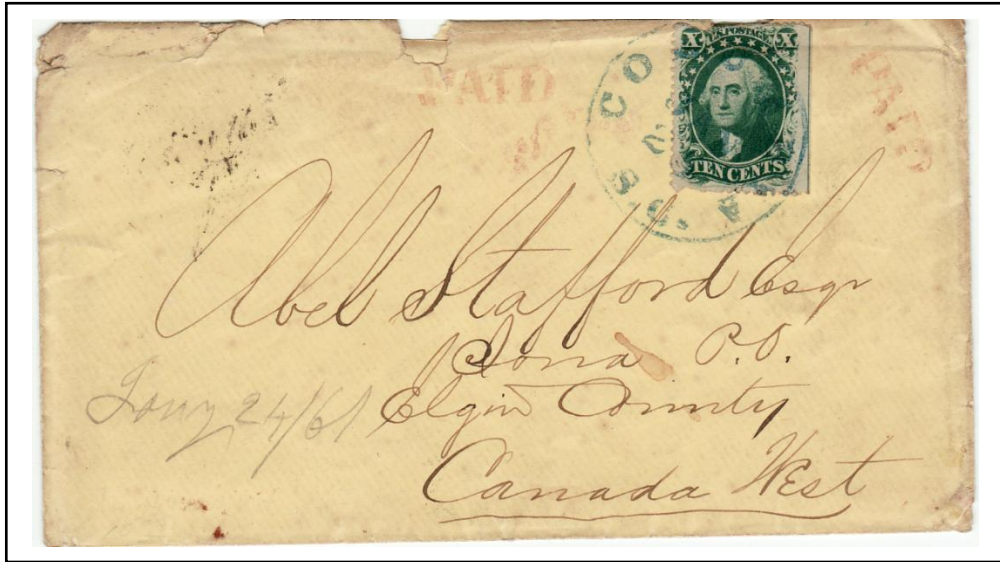 PAID
PAID
X U.S. POSTAGE X
TEN CENTS
CO
S. C.
Abel Stafford Esqr
Iona P.O.
Elgin County
Canada West
Jany 24/61